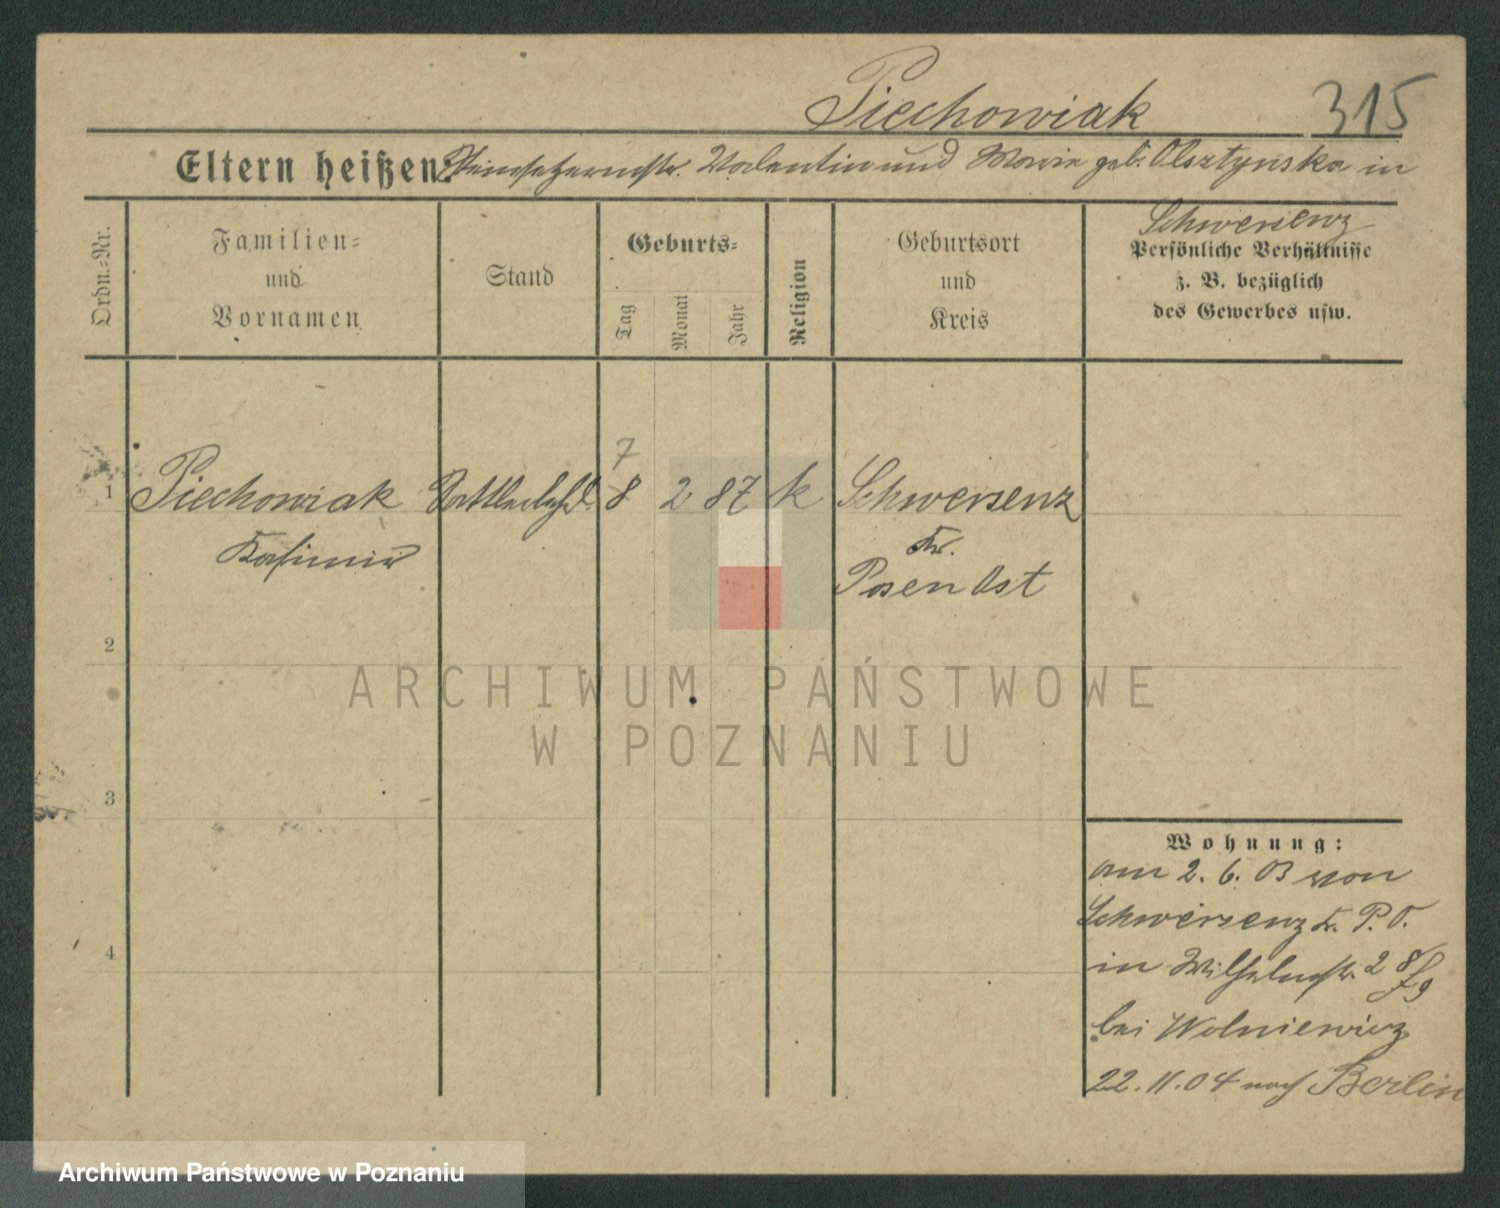 Piechowiak 315
Eltern heißen: Steinsetzermstr. Valentin und Maria geb. Olsztynska in
Schwersenz
Ordn.-Nr.
Familien- und Vornamen
Stand
Geburts-
Tag
Monat
Jahr
Religion
Geburtsort und Kreis
Persönliche Verhältnisse
z. B. bezüglich
des Gewerbes usw.
7
1 Piechowiak Sattlerlehrl. 8 2 87 k Schwersenz
Kasimir Kr.
Posen Ost
2
ARCHIWUM PAŃSTWOWE
W POZNANIU
3
Wohnung:
am 2. 6. 03 von
Schwersenz Kr. P. O.
4
in Wilhelmstr. 2
bei Wolniewicz
22. 11. 04 nach Berlin
Archiwum Państwowe w Poznaniu